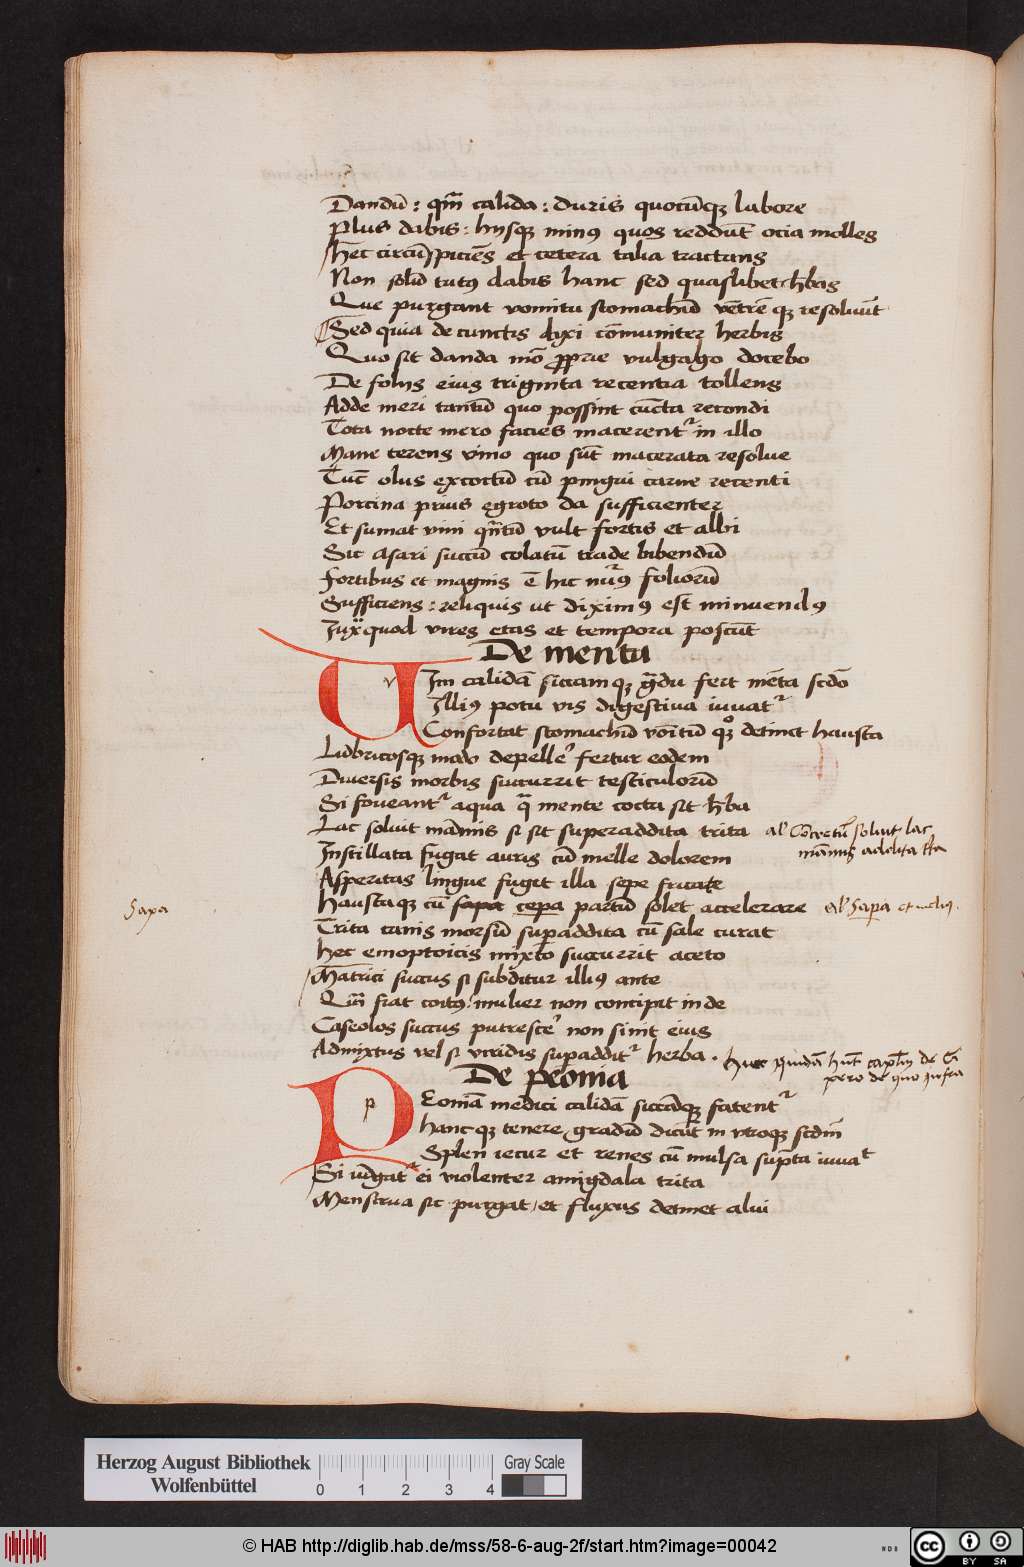 Dandū : qm̄ calida : duris quotūqz labore
Plus dabis : hijsqz minꝰ quos reddūt ocia molles
hec circūspiciēs et cetera talia tractans
Non solū tutꝰ dabis hanc sed quaslibet hr̄bas
Que purgant vomitu stomachū vētrē qz resoluūt
Sed quia de cunctis dyxi cōmuniter herbis
Quo sit danda mō ꝓprie vulgago docebo
De folijs eius triginta recentia tollens
Adde meri tantū quo possint cūcta recondi
Tota nocte mero facies macerentr̄ in illo
Mane terens vino quo sūt macerata resolue
Tūc olus excoctū cū pingui carne recenti
Porcina prius egroto da sufficienter
Et sumat vini qn̄tū vult fortis et albi
Sic asari succū colatū trade bibendū
Fortibus et magnis ē hic nūꝰ foliorū
Sufficiens : reliquis ut diximꝰ est minuendꝰ
Juxͣ quod vires etas et tempora poscūt
De menta
Vim calidā siccamqz gͣdu fert mēta scdō
Illiꝰ potu vis digestiua iuuatr̄
Confortat stomachū vōitū qͦz detinet hausta
Lubricosqz modo depelle͛ fertur eodem
Diuersis morbis succurrit testiculorū
Si foueantr̄ aqua qͣ mente cocta sit hr̄ba
Lac soluit mām̄is si sit superaddita trita al' Concretū soluit lac
mām̄is addita tr̄a
Instillata fugat auris cū melle dolorem
Asperitas lingue fugit illa sepe fricate
Sapa
haustaqz cū sapa cepa partū solet accelerare al' Sapa et meliꝰ.
Trita canis morsū supaddita cū sale curat
hec emoptoicis mixto succurrit aceto
Matrici succus si subditur illiꝰ ante
Qn̄ fiat coitꝰ : mulier non concipit inde
Caseolos succus putresce͛ non sinit eius
Admixtus vel si viridis supadditr̄ herba . huc quidā hn̄t capl'm de
pero de quo infra
De peonia
Peoniā medici calidā siccāqz fatentr̄
hanc qz tenere gradū dicūt in vtroqz scdm̄
Splen iecur et renes cū mulsa sūpta iuuat
Si iūgatr̄ ei violenter amigdala trita
Menstrua sic purgat, et fluxus detinet alui
Herzog August Bibliothek
Wolfenbüttel
0 1 2 3 4
Gray Scale
© HAB http://diglib.hab.de/mss/58-6-aug-2f/start.htm?image=00042
cc BY SA